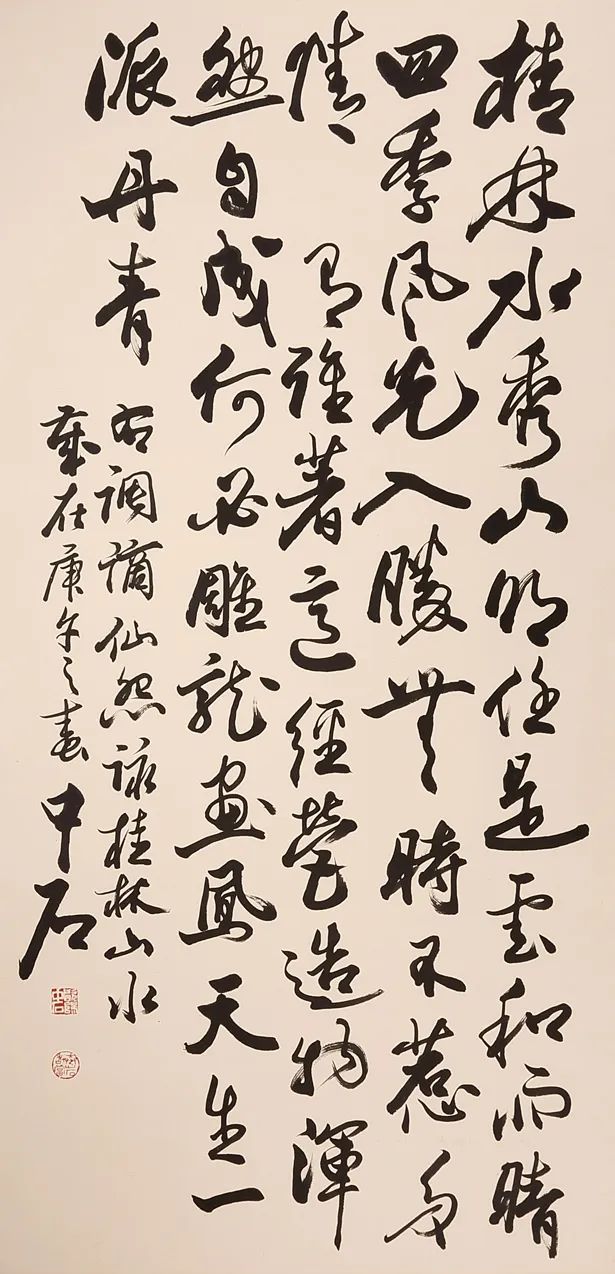 桂林水秀山明任是雲和雨晴
四季風光入勝無時不惹多
情 為誰著意經營造物渾
然自成何必雕龍畫鳳天生一
派丹青
右調謫仙怨詠桂林山水
歲在庚午之春 中石